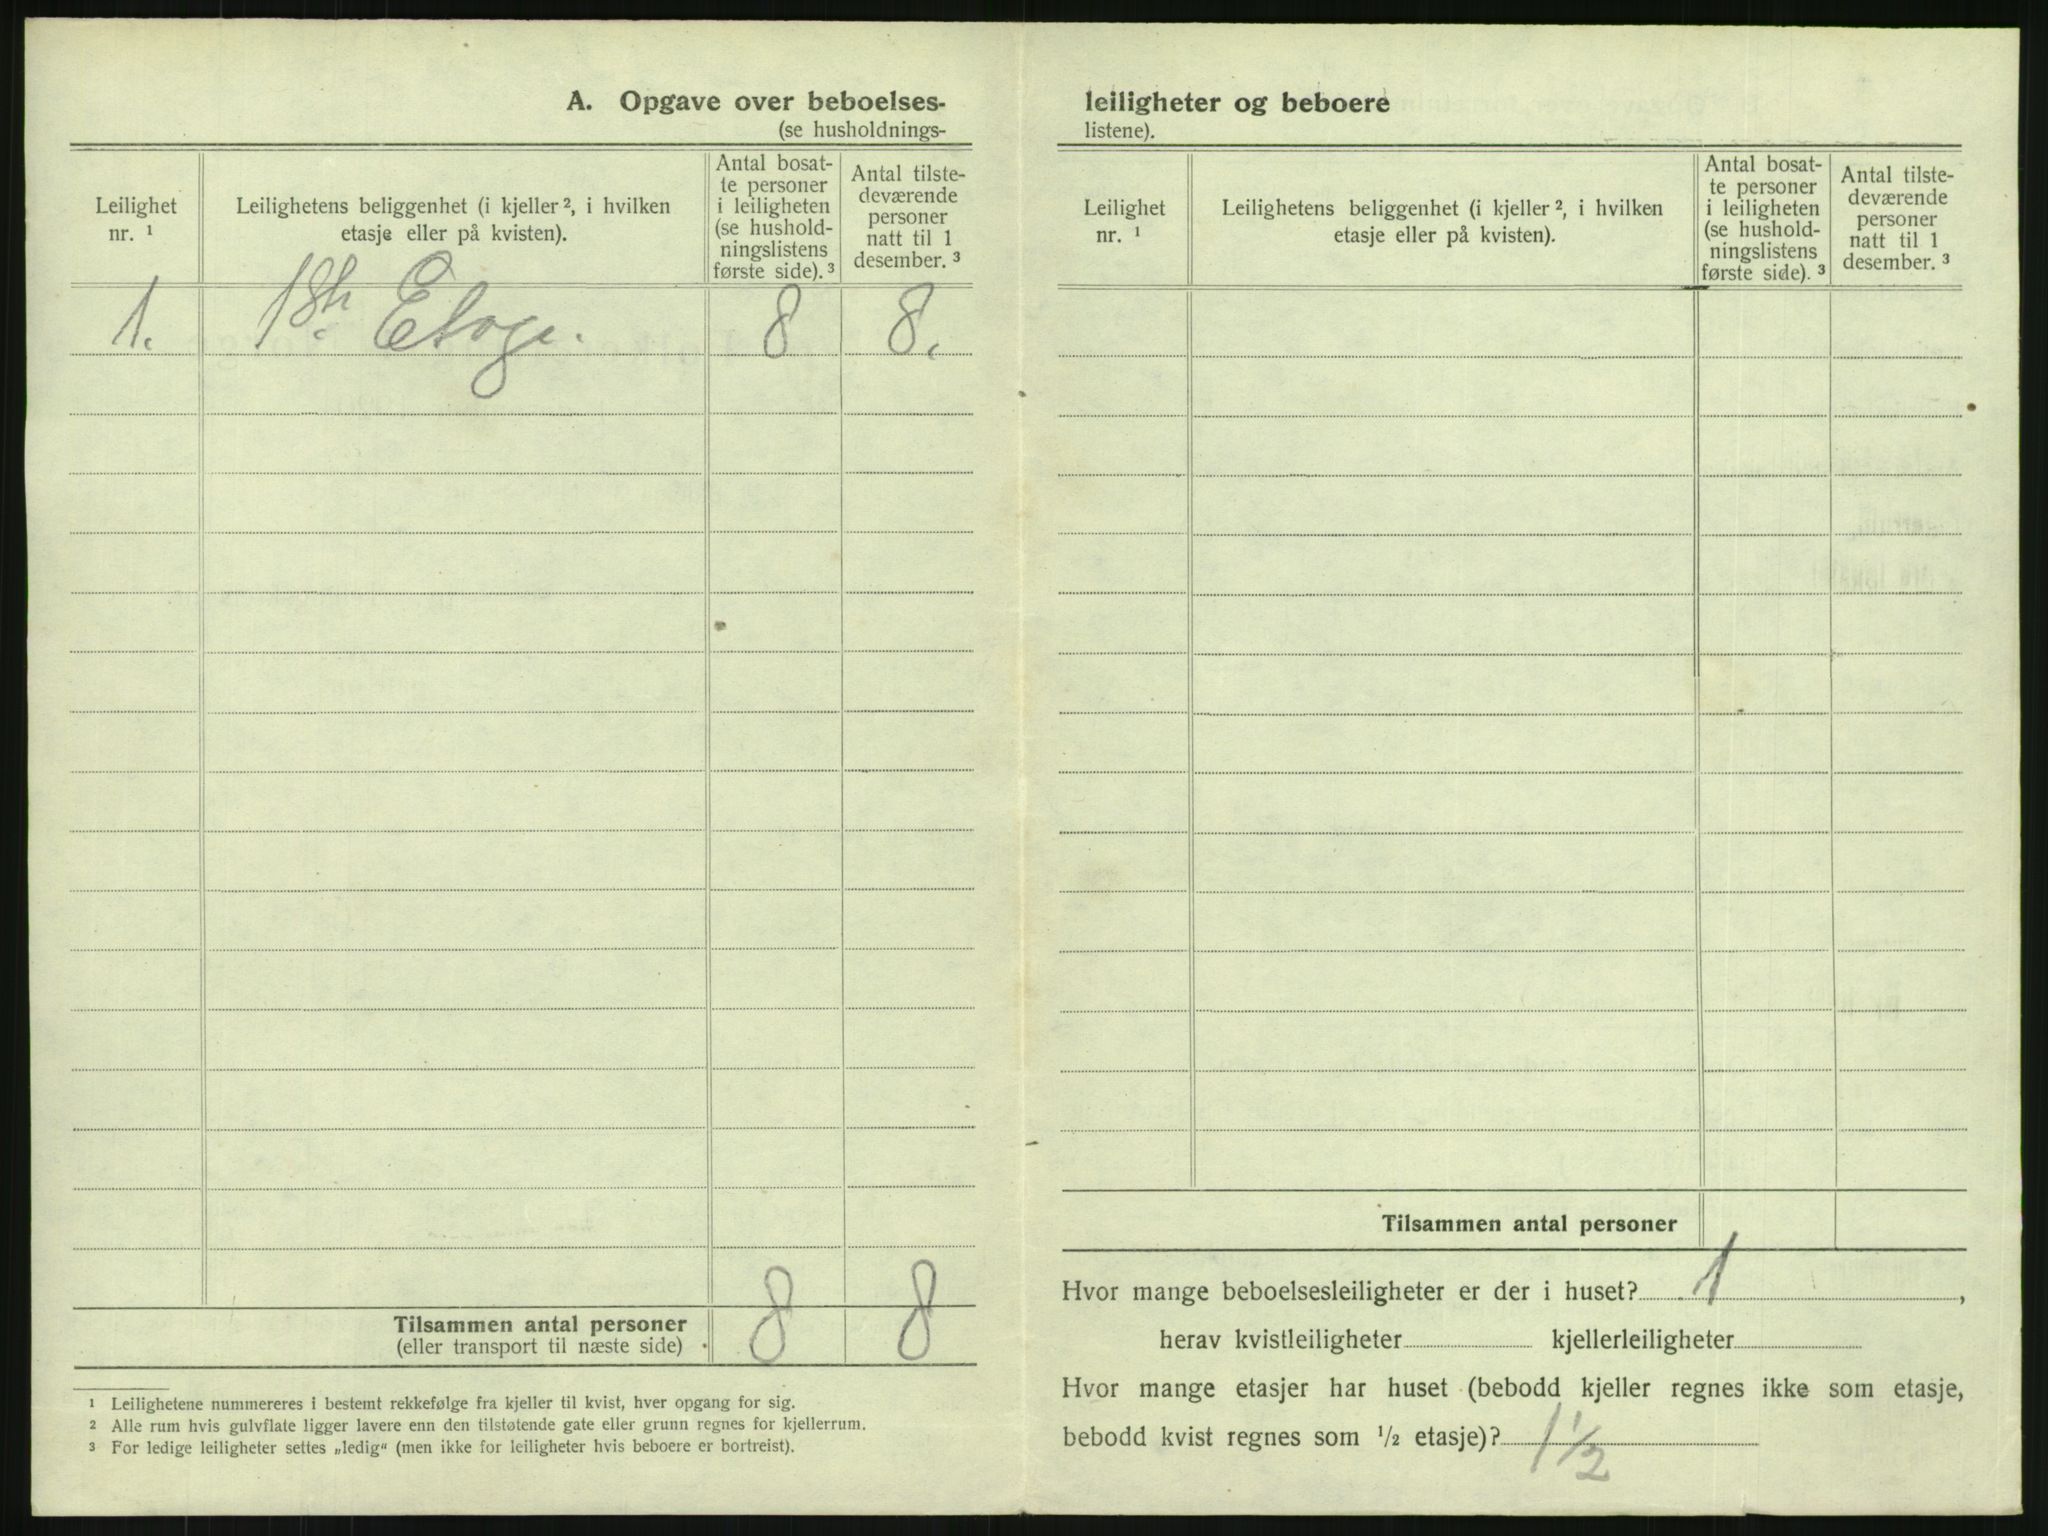 A. Opgave over beboelses-
(se husholdnings-
Leilighet
nr. ¹
Leilighetens beliggenhet (i kjeller ², i hvilken
etasje eller på kvisten).
Antal bosat-
te personer
i leiligheten
(se hushold-
ningslistens
første side). ³
Antal tilste-
deværende
personer
natt til 1
desember. ³
1. 1ste Etage. 8 8.
Tilsammen antal personer 8 8
(eller transport til næste side)
¹ Leilighetene nummereres i bestemt rekkefølge fra kjeller til kvist, hver opgang for sig.
² Alle rum hvis gulvflate ligger lavere enn den tilstøtende gate eller grunn regnes for kjellerrum.
³ For ledige leiligheter settes „ledig“ (men ikke for leiligheter hvis beboere er bortreist).
leiligheter og beboere
listene).
Leilighet
nr. ¹
Leilighetens beliggenhet (i kjeller ², i hvilken
etasje eller på kvisten).
Antal bosat-
te personer
i leiligheten
(se hushold-
ningslistens
første side). ³
Antal tilste-
deværende
personer
natt til 1
desember. ³
Tilsammen antal personer
Hvor mange beboelsesleiligheter er der i huset? 1,
herav kvistleiligheter kjellerleiligheter
Hvor mange etasjer har huset (bebodd kjeller regnes ikke som etasje,
bebodd kvist regnes som ½ etasje)? 1½